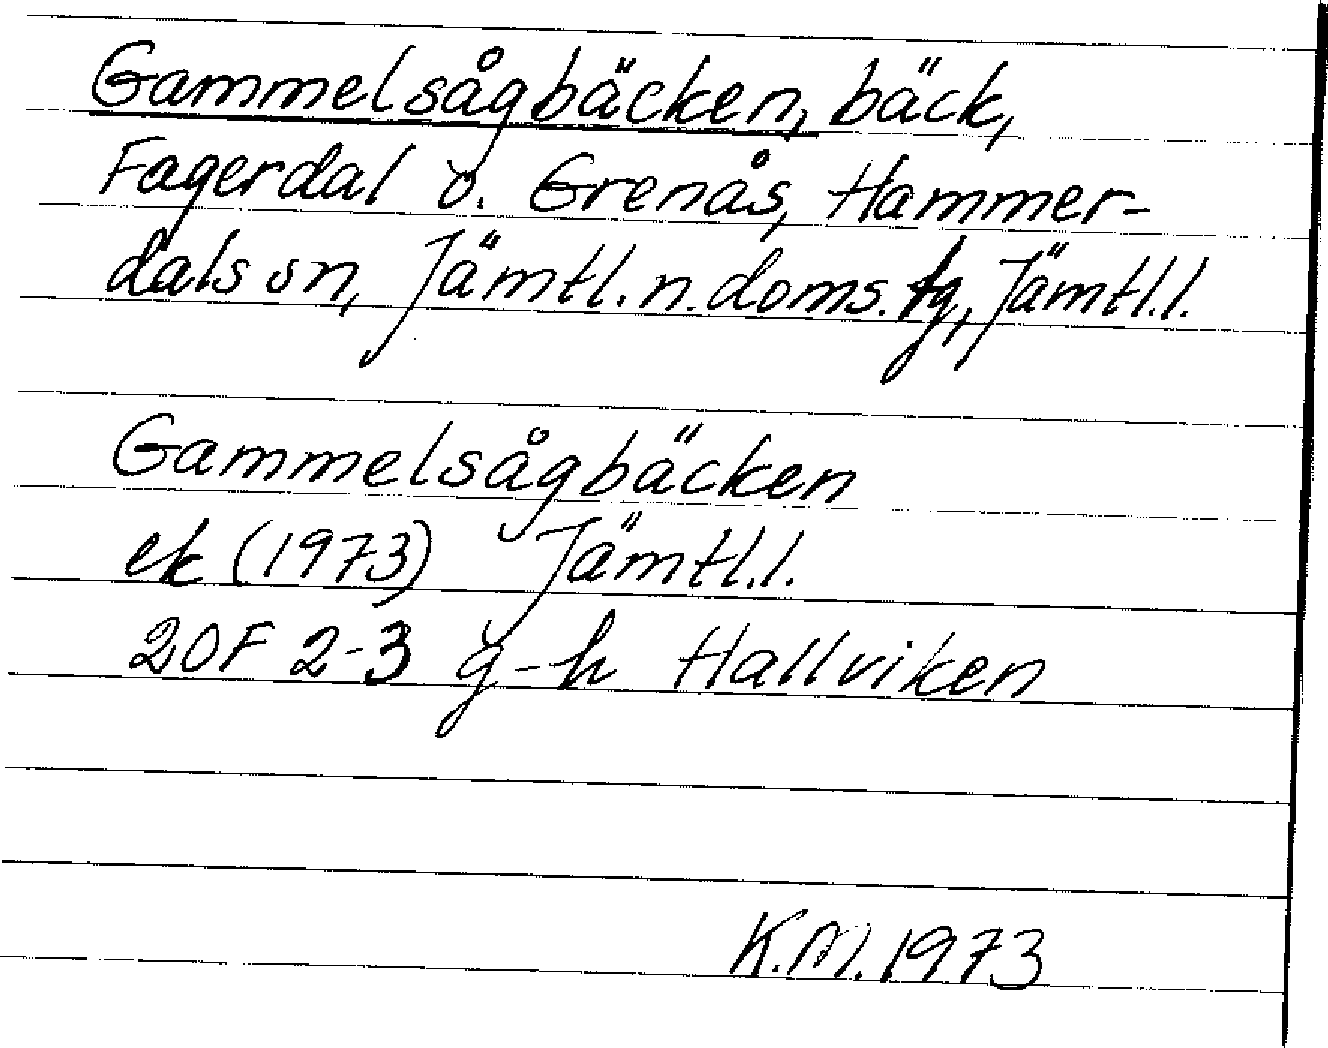 Gammelsågbäcken, bäck,
Fagerdal o. Grenås, Hammer-
dals sn, Jämtl. n. doms. tg, Jämtl.l.
Gammelsågbäcken
ek (1973) Jämtl.l.
20F 2-3 g-h Hallviken
K.M. 1973